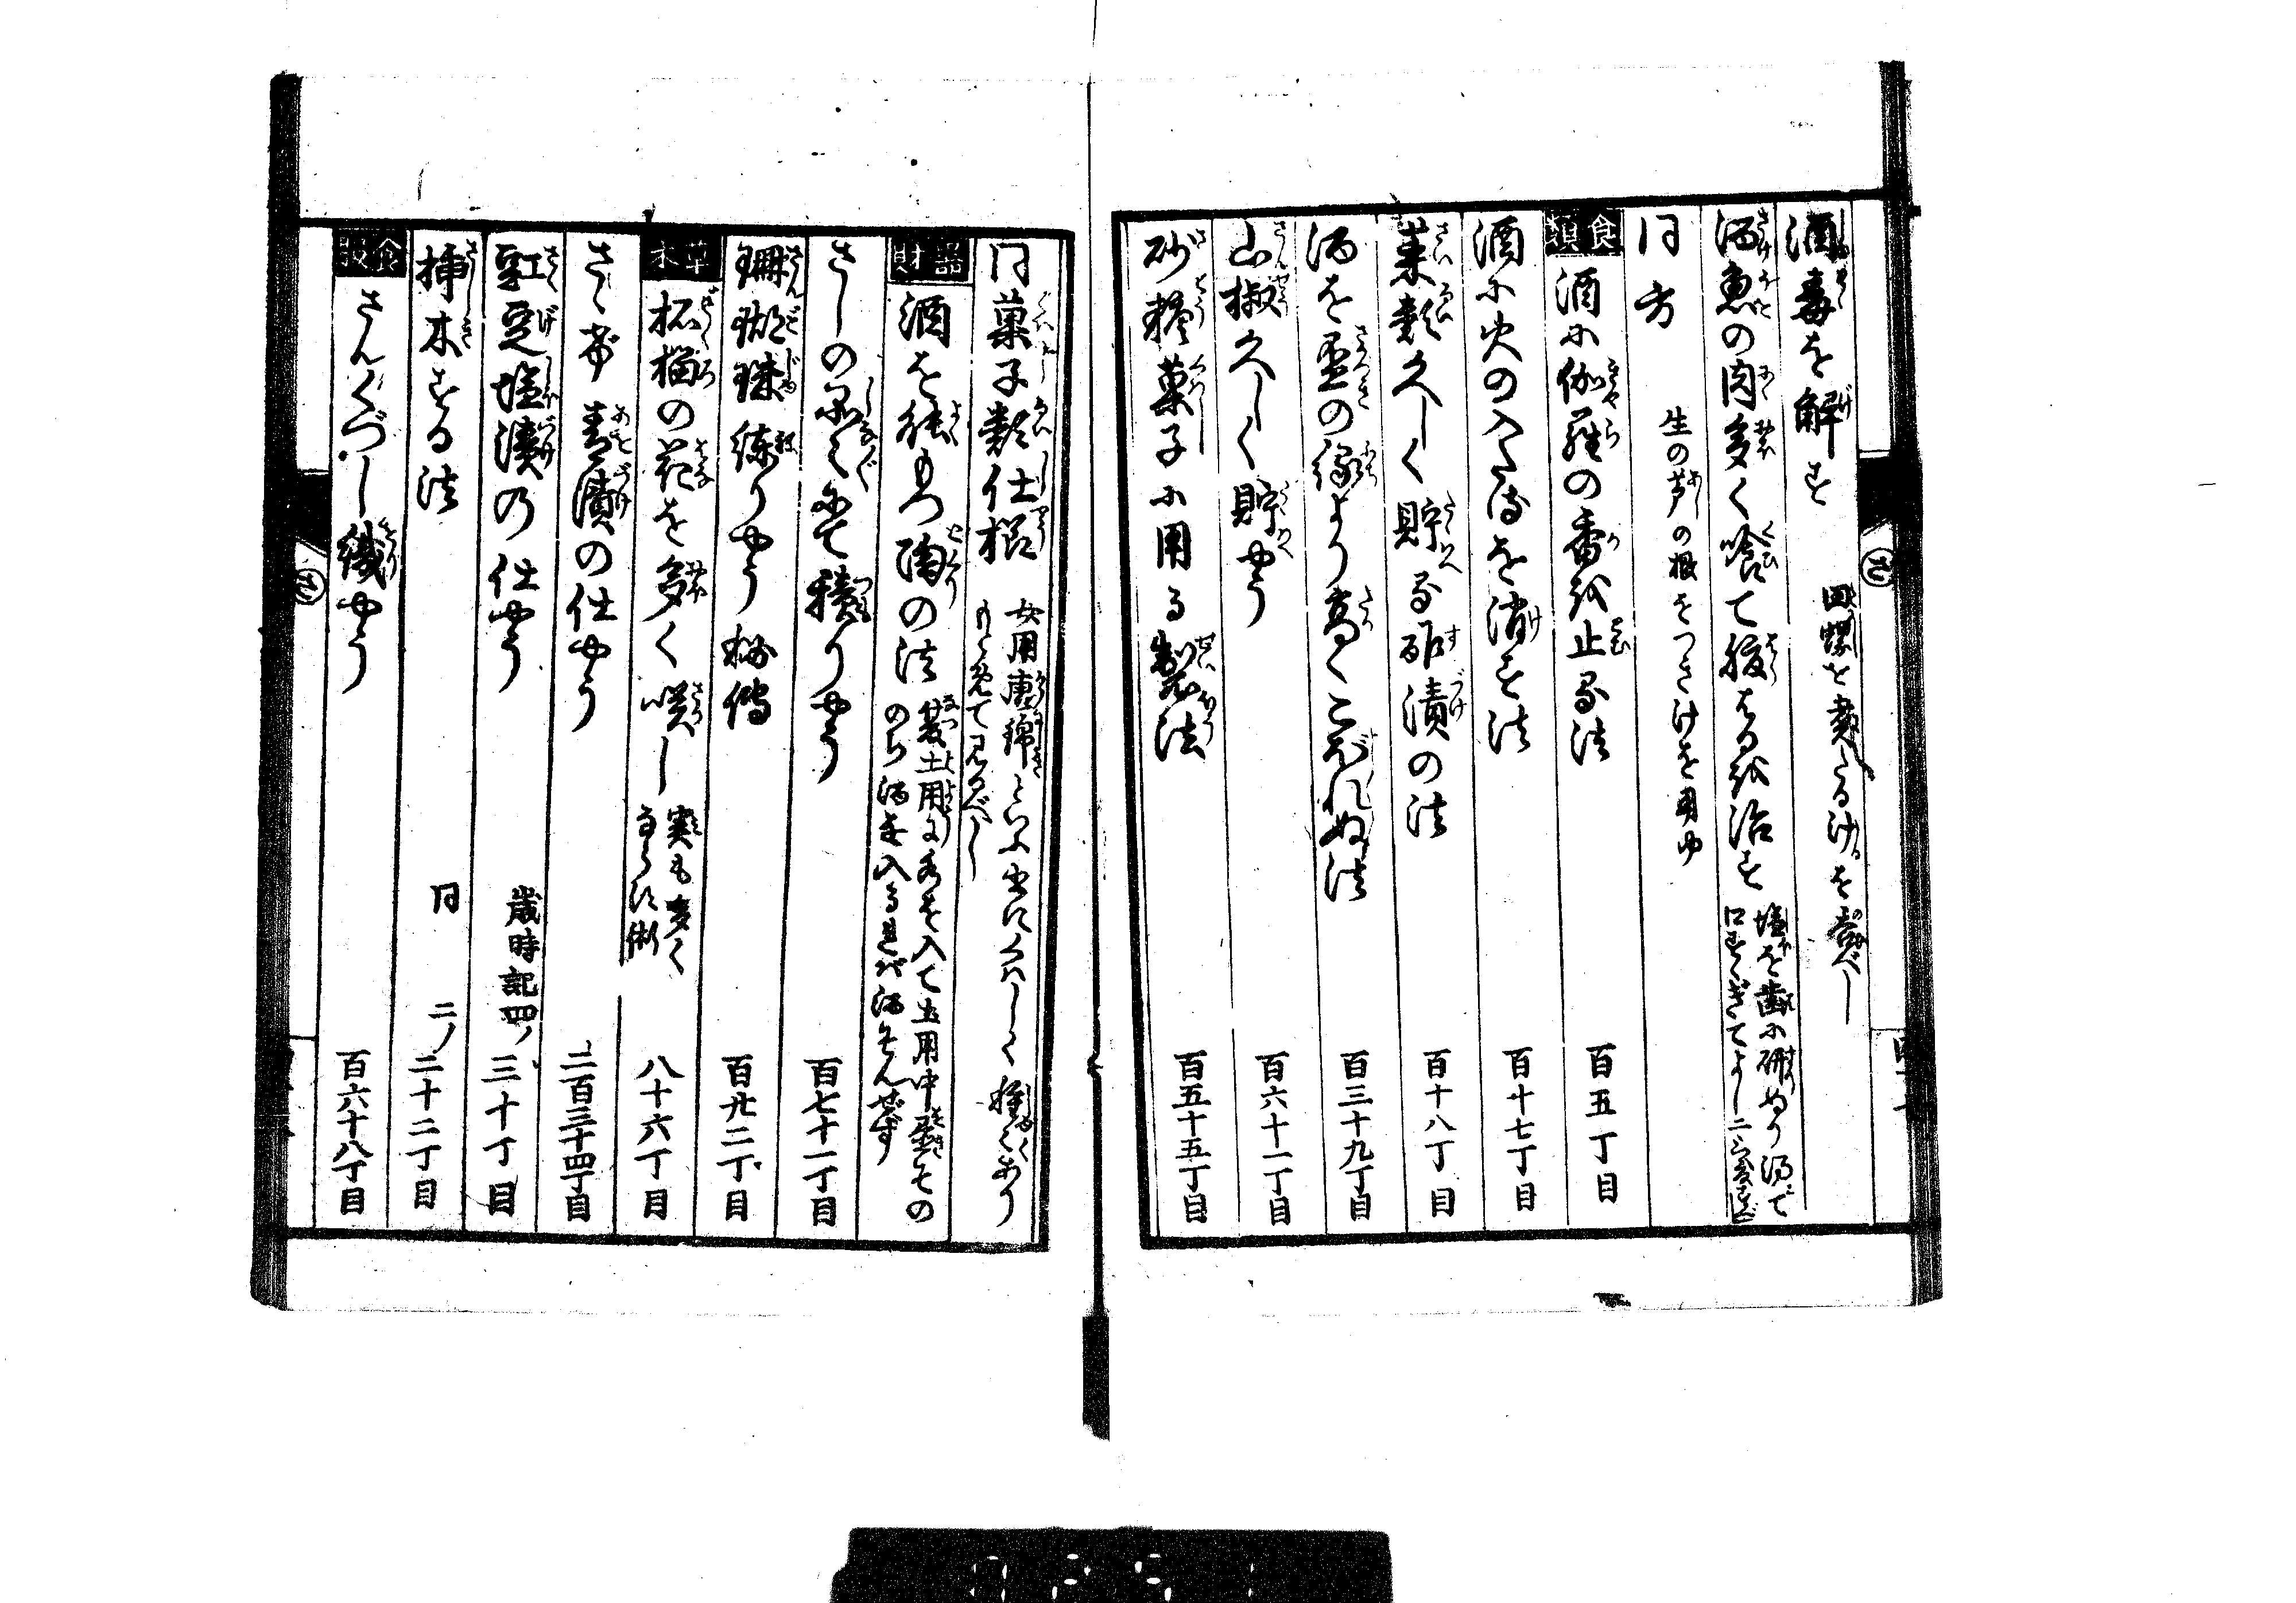 酒毒を解す 田螺を煮たる汁を呑べし
酒魚の肉多く喰て腹はるを治す 塩を歯に研ぬり湯で
口すゝぎてよし
同方 生の芦の根をつきけを用ゆ
食類 酒に伽羅の香を止る法 百五丁目
酒に火の入たるを消す法 百十七丁目
菜類久しく貯る酢漬の法 百十八丁目
酒を盃の縁より高くこぼれぬ法 百三十九丁目
山椒久しく貯やう 百六十一丁目
砂糖菓子に用る製法 百五十五丁目
さ
同菓子類仕様 女用唐錦といふ書にくはしく種々あり
もとめて見るべし
器財 酒を能もつ陶の法 夏土用に水を入て土用中置その
のち酒を入るればそんぜず
さしの品々にて積りやう 百七十一丁目
珊瑚珠練りやう 秘傳 百九十二丁目
草木 柘榴の花を多く咲し 実も多く
なる術 八十六丁目
さゝげ青漬の仕やう 二百三十四丁目
豇豆塩漬の仕やう 歳時記四ノ三十丁目
挿木する法 同 二ノ二十二丁目
衣服 さんくづし織やう 百六十八丁目
さ